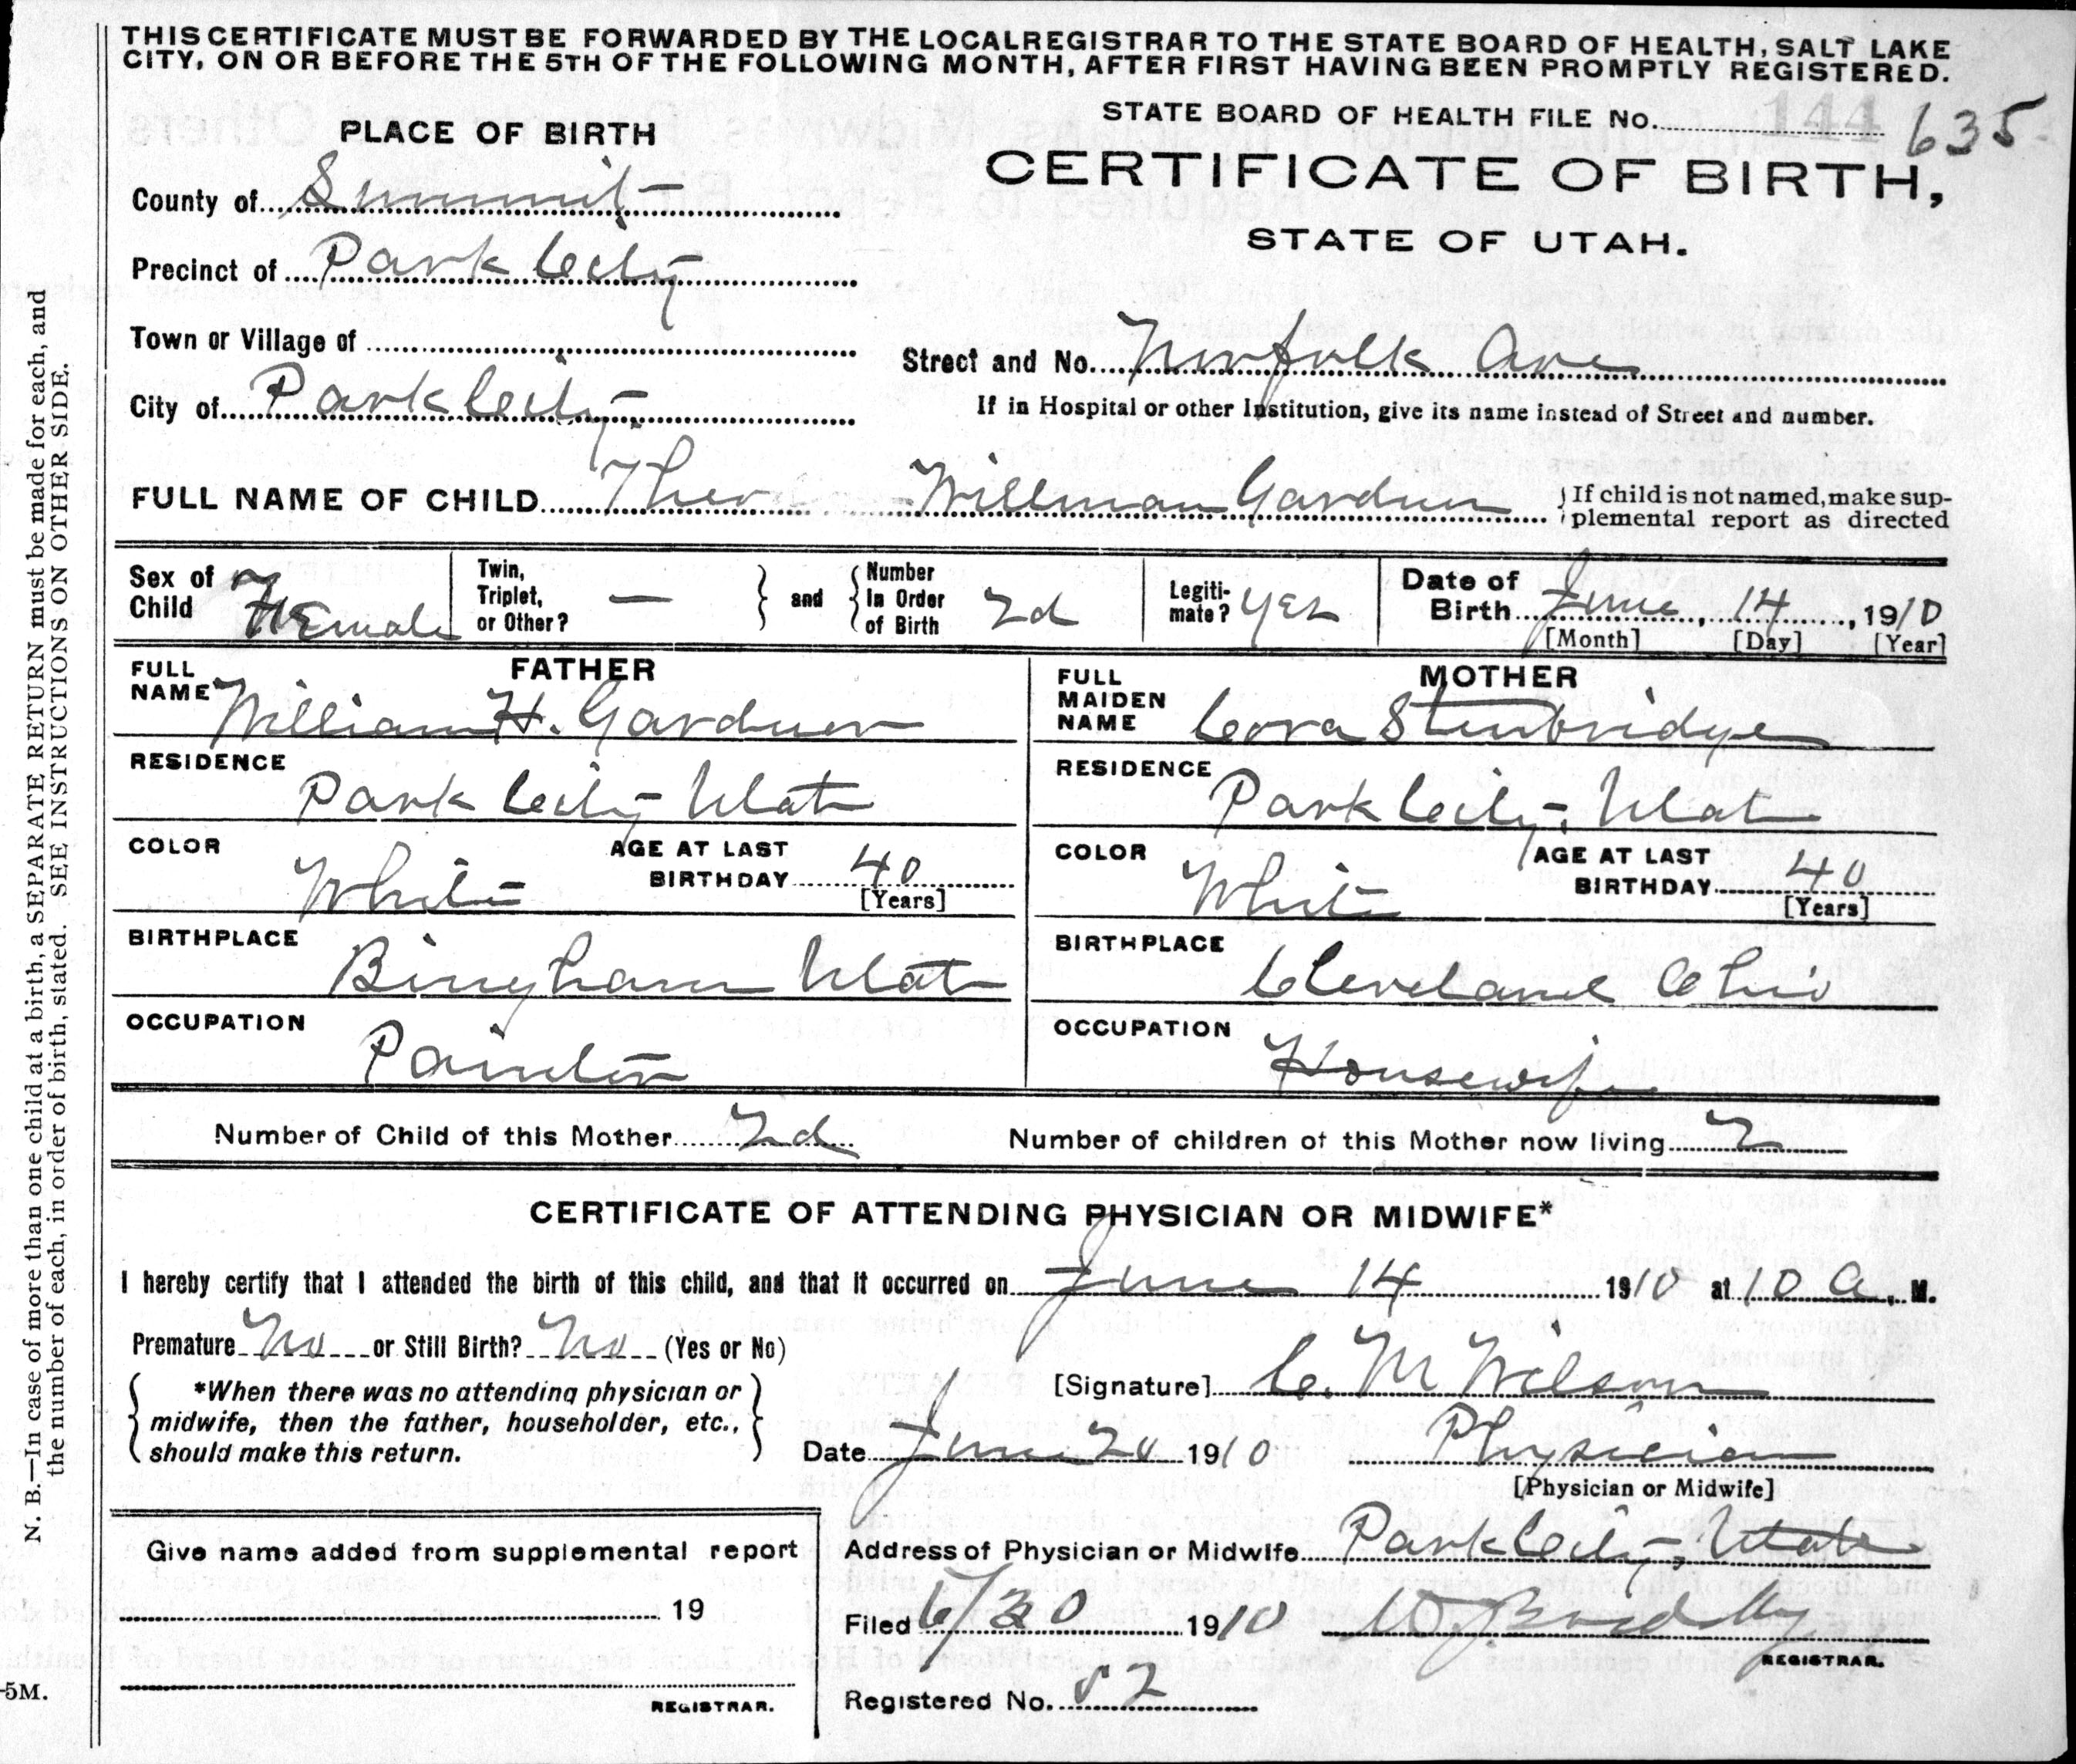 THIS CERTIFICATE MUST BE FORWARDED BY THE LOCAL REGISTRAR TO THE STATE BOARD OF HEALTH, SALT LAKE
CITY, ON OR BEFORE THE 5TH OF THE FOLLOWING MONTH, AFTER FIRST HAVING BEEN PROMPTLY REGISTERED.
STATE BOARD OF HEALTH FILE No. 144 635
PLACE OF BIRTH
CERTIFICATE OF BIRTH,
STATE OF UTAH.
County of Summit
Precinct of Park City
Town or Village of
Street and No. Norfolk Ave
City of Park City
If in Hospital or other Institution, give its name instead of Street and number.
FULL NAME OF CHILD Willman Gardner
If child is not named, make sup-
plemental report as directed
Sex of Child Female
Twin, Triplet, or Other? —
and
Number In Order of Birth 2d
Legiti-mate? Yes
Date of Birth June, 14, 1910
[Month] [Day] [Year]
FATHER
FULL NAME William H. Gardner
RESIDENCE
Park City Utah
COLOR White
AGE AT LAST BIRTHDAY 40
[Years]
BIRTHPLACE
Bingham Utah
OCCUPATION
Painter
MOTHER
FULL MAIDEN NAME Cora Stenbridge
RESIDENCE
Park City, Utah
COLOR White
AGE AT LAST BIRTHDAY 40
[Years]
BIRTHPLACE
Cleveland Ohio
OCCUPATION
Housewife
Number of Child of this Mother 2d
Number of children of this Mother now living 2
CERTIFICATE OF ATTENDING PHYSICIAN OR MIDWIFE*
I hereby certify that I attended the birth of this child, and that it occurred on June 14 1910 at 10 A. M.
Premature No or Still Birth? No (Yes or No)
*When there was no attending physician or
midwife, then the father, householder, etc.,
should make this return.
[Signature] C. M Wilson
Date June 20 1910 Physician
[Physician or Midwife]
Give name added from supplemental report
19
REGISTRAR.
Address of Physician or Midwife Park City, Utah
Filed 6/30 1910
REGISTRAR.
Registered No. 52
N. B.—In case of more than one child at a birth, a SEPARATE RETURN must be made for each, and
the number of each, in order of birth, stated. SEE INSTRUCTIONS ON OTHER SIDE.
-5M.